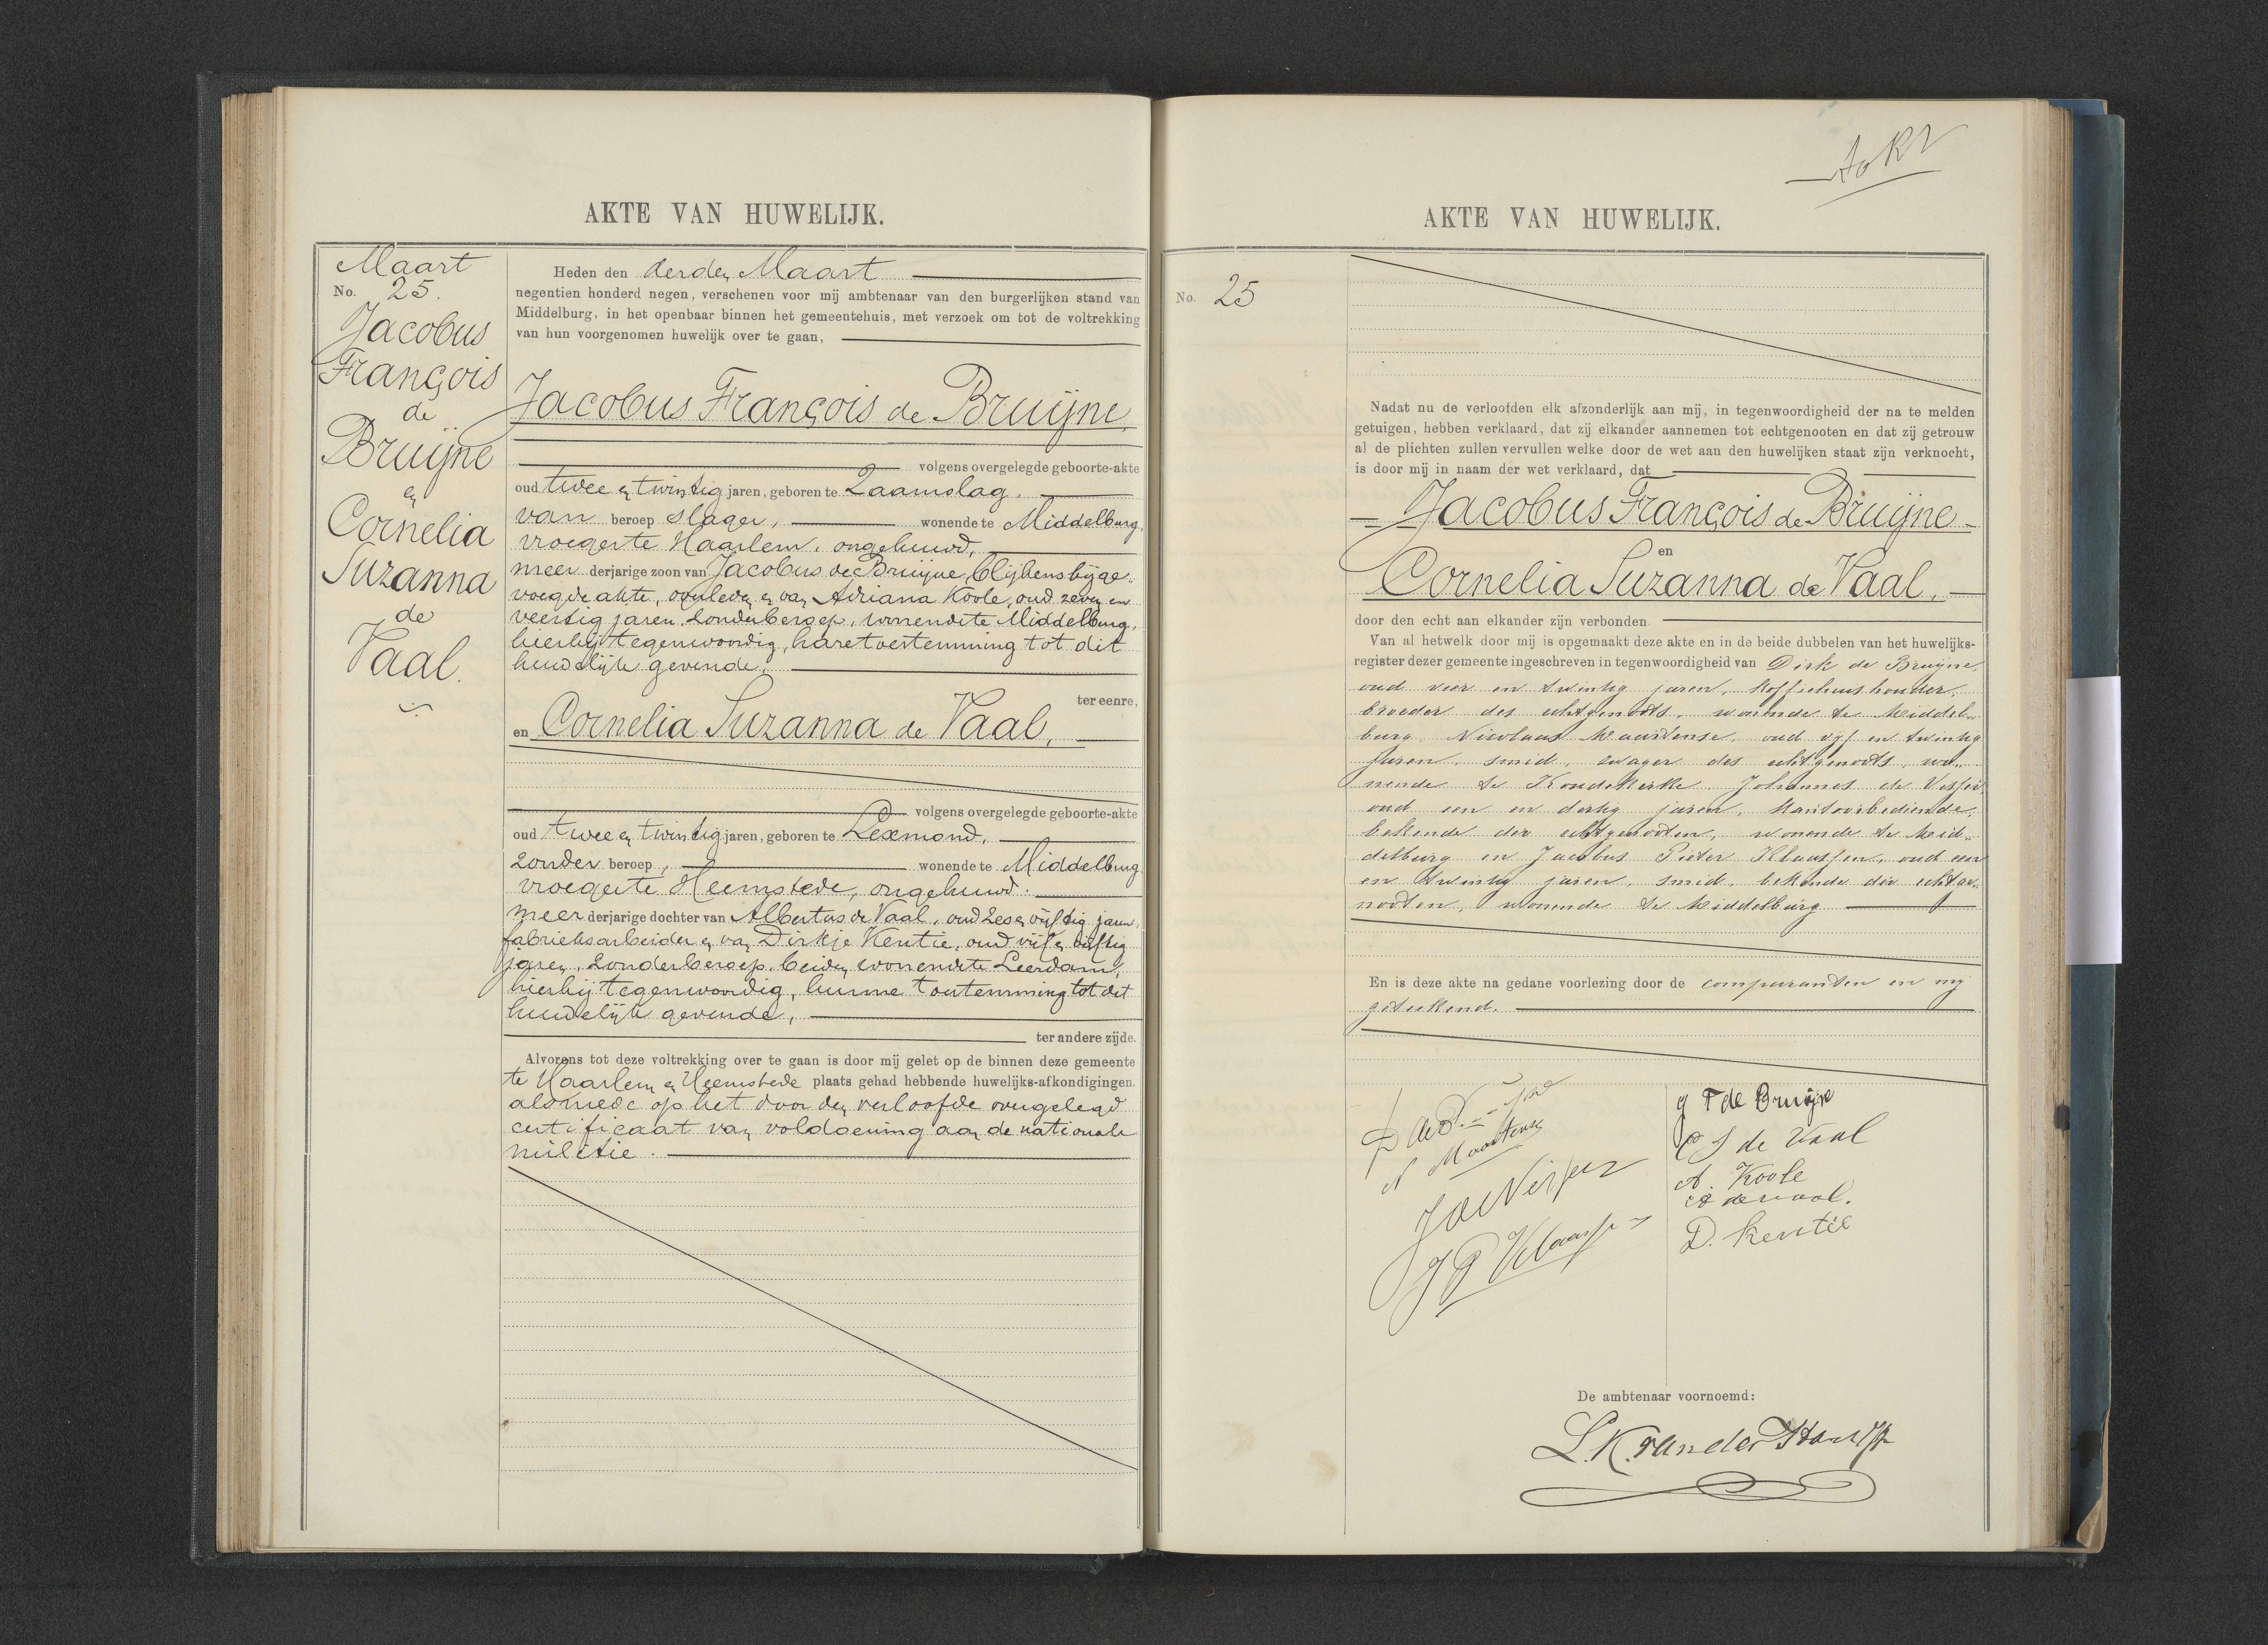 AKTE VAN HUWELIJK.
Maart
No. 25.
Jacobus
François
de
Bruijne
en
Cornelia
Suzanna
de
Vaal.
Heden den derden Maart
negentien honderd negen, verschenen voor mij ambtenaar van den burgerlijken stand van
Middelburg, in het openbaar binnen het gemeentehuis, met verzoek om tot de voltrekking
van hun voorgenomen huwelijk over te gaan,
Jacobus François de Bruijne,
volgens overgelegde geboorte-akte
oud twee en twintig jaren, geboren te Zaamslag.
van beroep slager, wonende te Middelburg,
vroeger te Haarlem, ongehuwd,
meerderjarige zoon van Jacobus de Bruijne, blijkens bijge-
voegde akte, overleden en van Adriana Koole, oud zeven en
veertig jaren, zonder beroep, wonende te Middelburg,
hierbij tegenwoordig, hare toestemming tot dit
huwelijk gevende,
ter eenre,
en Cornelia Suzanna de Vaal,
volgens overgelegde geboorte-akte
oud twee en twintig jaren, geboren te Lexmond,
zonder beroep, wonende te Middelburg,
vroeger te Heemstede, ongehuwd.
meerderjarige dochter van Albertus de Vaal, oud zes en vijftig jaren,
fabrieksarbeider en van Dirkje Kentie, oud vijf en vijftig
jaren, zonder beroep, beiden wonende te Leerdam,
hierbij tegenwoordig, hunne toestemming tot dit
huwelijk gevende,
ter andere zijde.
Alvorens tot deze voltrekking over te gaan is door mij gelet op de binnen deze gemeente
te Haarlem en Heemstede plaats gehad hebbende huwelijks-afkondigingen.
alsmede op het door den verloofde overgelegd
certificaat van voldoening aan de nationale
militie.
AKTE VAN HUWELIJK.
No. 25
Nadat nu de verloofden elk afzonderlijk aan mij, in tegenwoordigheid der na te melden
getuigen, hebben verklaard, dat zij elkander aannemen tot echtgenooten en dat zij getrouw
al de plichten zullen vervullen welke door de wet aan den huwelijken staat zijn verknocht,
is door mij in naam der wet verklaard, dat
Jacobus François de Bruijne
en
Cornelia Suzanna de Vaal,
door den echt aan elkander zijn verbonden.
Van al hetwelk door mij is opgemaakt deze akte en in de beide dubbelen van het huwelijks-
register dezer gemeente ingeschreven in tegenwoordigheid van Dirk de Bruijne,
oud vier en twintig jaren, koffiehuishouder,
broeder des echtgenoots, wonende te Middel-
burg, Nicolaas Maartense, oud vijf en twintig
jaren, smid, zwager des echtgenoots, wo-
nende te Koudekerke Johannes de Visser
oud een en dertig jaren, kantoorbediende,
bekende der echtgenooten, wonende te Mid-
delburg en Jacobus Pieter Klaassen, oud een
en twintig jaren, smid, bekende der echtge-
nooten, wonende te Middelburg
En is deze akte na gedane voorlezing door de comparanten en mij
geteekend.
N Maartense
J de Visser
J P Klaassen
J F de Bruijne
C S de Vaal
A. Koole
A de vaal.
D. Kentie
De ambtenaar voornoemd:
L. K. van der